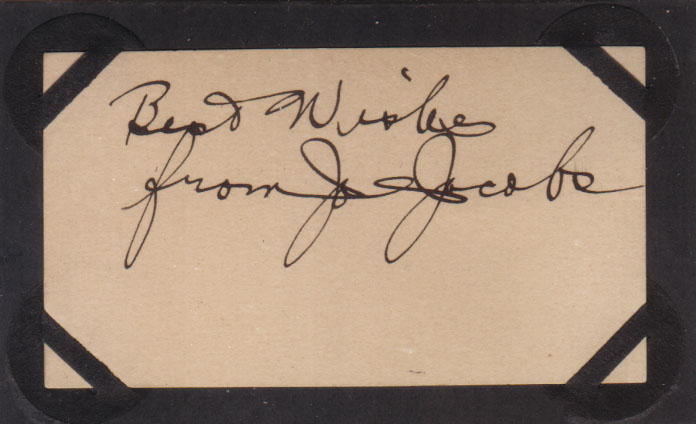 Best Wishes
from Joe Jacobs